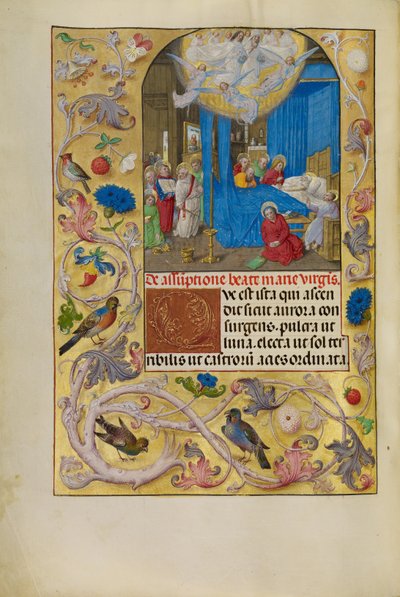 De assūptione beate marie virgis.
Que est ista qui ascen
dit sicut aurora con
surgens, pulcra ut
luna, electa ut sol ter
ribilis ut castrorū acies ordinata